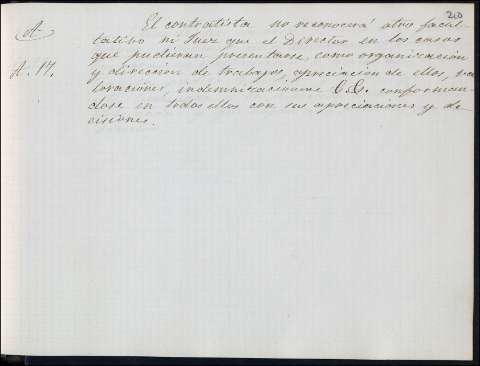 210
A. El contratista no reconocerá otro facul-
tativo ni Juez que el Director en los casos
que pudieran presentarse, como organización
A. 17. y dirección de trabajos, apreciación de ellos, va-
loraciones, indemnizaciones &.&. conforman-
dose en todos ellos con sus apreciaciones y de-
cisiones.